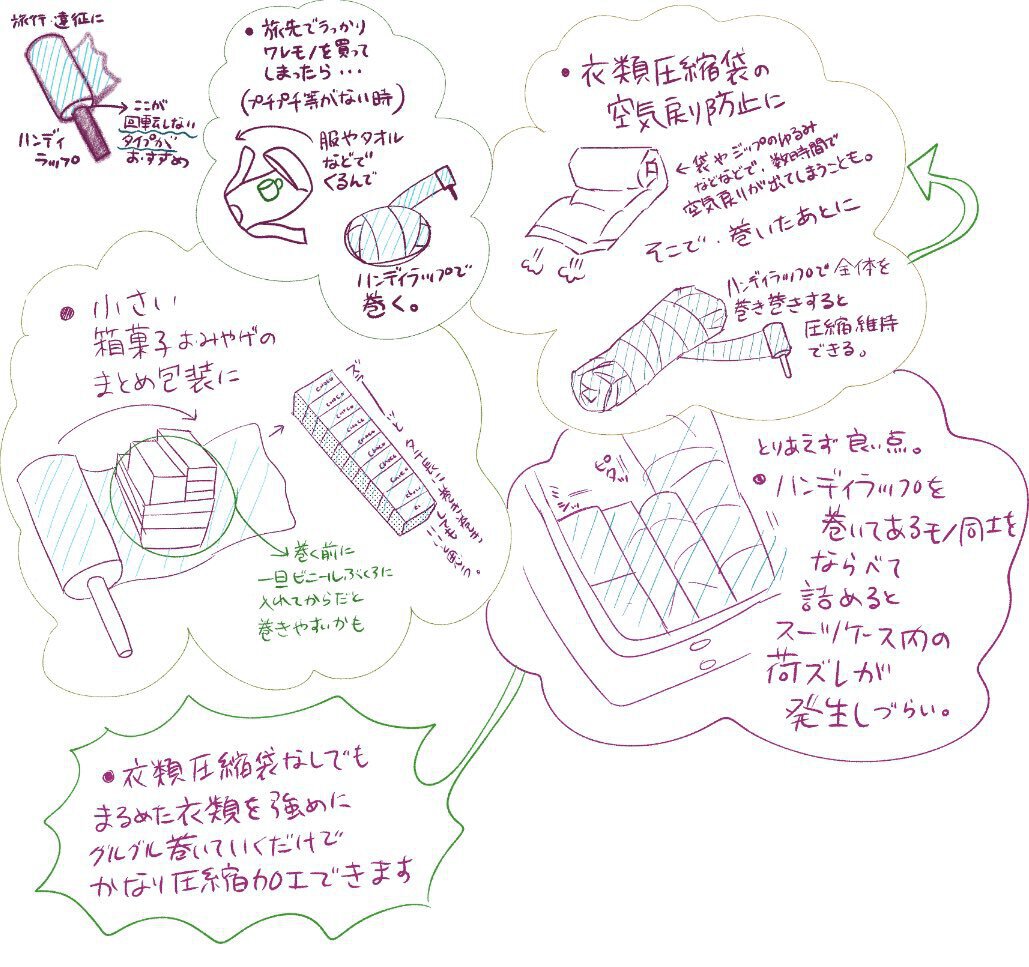 旅行・遠征に
ハンディ
ラップ
ここが
回転しない
タイプが
おすすめ
• 旅先でうっかり
ワレモノを買って
しまったら・・・
(プチプチ等がない時)
服やタオル
などで
くるんで
ハンディラップで
巻く。
• 衣類圧縮袋の
空気戻り防止に
←袋やジップのゆるみ
などなどで、数時間で
空気戻りが出てしまうことも。
そこで、巻いたあとに
ハンディラップで全体を
巻き巻きすると
圧縮維持
できる。
• 小さい
箱菓子おみやげの
まとめ包装に
CHOCO
CHOCO
CHOCO
CHOCO
CHOCO
CHOCO
CHOCO
ズラーーッと
タテ長に巻き巻き
しても
巻く前に
一旦ビニールぶくろに
入れてからだと
巻きやすいかも
ピタッ
ビシッ
とりあえず良い点。
• ハンディラップを
巻いてあるモノ同士を
ならべて
詰めると
スーツケース内の
荷ズレが
発生しづらい。
• 衣類圧縮袋なしでも
まるめた衣類を強めに
グルグル巻いていくだけで
かなり圧縮加工できます